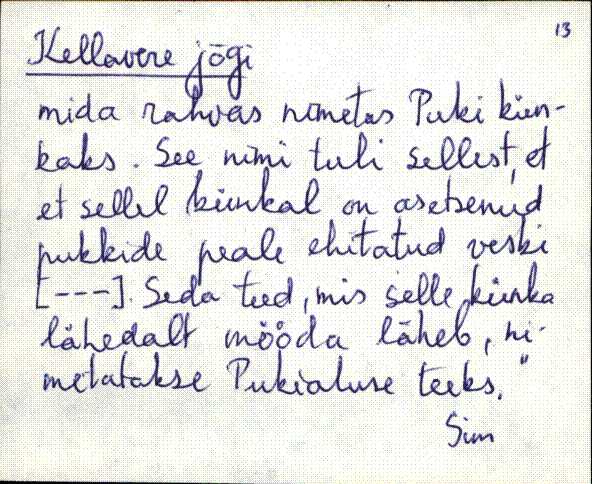 13
Kellavere jõgi
mida rahvas nimetas Puki kün-
kaks. See nimi tuli sellest, et
et sellel künkal on asetsenud
pukkide peale ehitatud veski
[---]. Seda teed, mis selle künka
lähedalt mööda läheb, ni-
metatakse Pukialuse teeks."
Sim